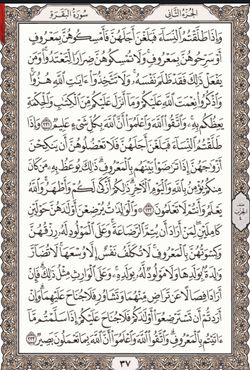 الجزء الثاني
سورة البقرة
وَإِذَا طَلَّقْتُمُ ٱلنِّسَآءَ فَبَلَغْنَ أَجَلَهُنَّ فَأَمْسِكُوهُنَّ بِمَعْرُوفٍ
أَوْ سَرِّحُوهُنَّ بِمَعْرُوفٍ وَلَا تُمْسِكُوهُنَّ ضِرَارًا لِّتَعْتَدُوا۟ وَمَن
يَفْعَلْ ذَٰلِكَ فَقَدْ ظَلَمَ نَفْسَهُۥ وَلَا تَتَّخِذُوٓا۟ ءَايَٰتِ ٱللَّهِ هُزُوًا
وَٱذْكُرُوا۟ نِعْمَتَ ٱللَّهِ عَلَيْكُمْ وَمَآ أَنزَلَ عَلَيْكُم مِّنَ ٱلْكِتَٰبِ وَٱلْحِكْمَةِ
يَعِظُكُم بِهِۦ وَٱتَّقُوا۟ ٱللَّهَ وَٱعْلَمُوٓا۟ أَنَّ ٱللَّهَ بِكُلِّ شَىْءٍ عَلِيمٌ ٢٣١
وَإِذَا طَلَّقْتُمُ ٱلنِّسَآءَ فَبَلَغْنَ أَجَلَهُنَّ فَلَا تَعْضُلُوهُنَّ أَن يَنكِحْنَ
أَزْوَٰجَهُنَّ إِذَا تَرَٰضَوْا۟ بَيْنَهُم بِٱلْمَعْرُوفِ ذَٰلِكَ يُوعَظُ بِهِۦ مَن كَانَ
مِنكُمْ يُؤْمِنُ بِٱللَّهِ وَٱلْيَوْمِ ٱلْءَاخِرِ ذَٰلِكُمْ أَزْكَىٰ لَكُمْ وَأَطْهَرُ وَٱللَّهُ
يَعْلَمُ وَأَنتُمْ لَا تَعْلَمُونَ ٢٣٢ وَٱلْوَٰلِدَٰتُ يُرْضِعْنَ أَوْلَٰدَهُنَّ حَوْلَيْنِ
كَامِلَيْنِ لِمَنْ أَرَادَ أَن يُتِمَّ ٱلرَّضَاعَةَ وَعَلَى ٱلْمَوْلُودِ لَهُۥ رِزْقُهُنَّ
وَكِسْوَتُهُنَّ بِٱلْمَعْرُوفِ لَا تُكَلَّفُ نَفْسٌ إِلَّا وُسْعَهَا لَا تُضَآرَّ
وَٰلِدَةٌۢ بِوَلَدِهَا وَلَا مَوْلُودٌ لَّهُۥ بِوَلَدِهِۦ وَعَلَى ٱلْوَارِثِ مِثْلُ ذَٰلِكَ فَإِنْ
أَرَادَا فِصَالًا عَن تَرَاضٍ مِّنْهُمَا وَتَشَاوُرٍ فَلَا جُنَاحَ عَلَيْهِمَا وَإِنْ
أَرَدتُّمْ أَن تَسْتَرْضِعُوٓا۟ أَوْلَٰدَكُمْ فَلَا جُنَاحَ عَلَيْكُمْ إِذَا سَلَّمْتُم مَّآ
ءَاتَيْتُم بِٱلْمَعْرُوفِ وَٱتَّقُوا۟ ٱللَّهَ وَٱعْلَمُوٓا۟ أَنَّ ٱللَّهَ بِمَا تَعْمَلُونَ بَصِيرٌ ٢٣٣
٣٧